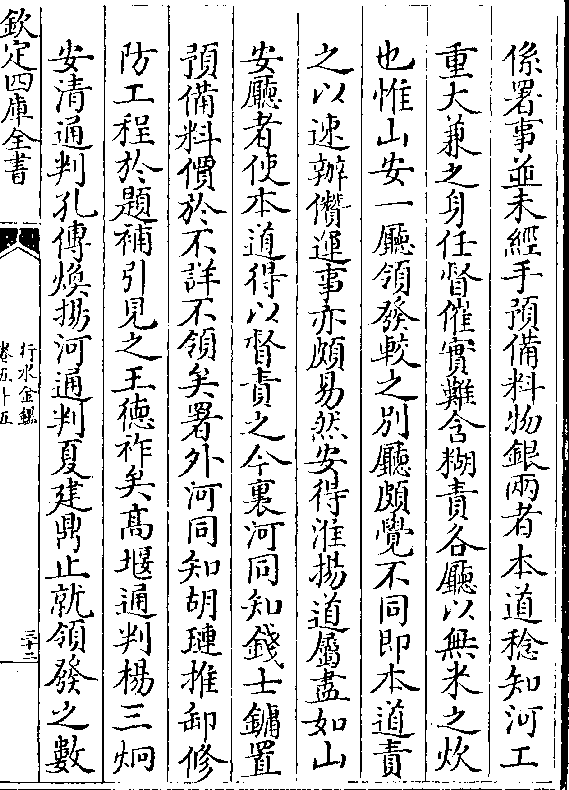 係署事並未經手預備料物銀兩者本道稔知河工
重大兼之身任督催實難含糊責各廳以無米之炊
也惟山安一廳領發較之别廳頗覺不同即本道責
之以速辦儹運事亦頗易然安得淮揚道屬盡如山
安廳者使本道得以督責之今裏河同知錢士鏞置
預備料價於不詳不領矣署外河同知胡璉推卸修
防工程於題補引見之王徳祚矣髙堰通判楊三炯
安清通判孔傳煥揚河通判夏建鼎止就領發之數
欽定四庫全書
行水金鑑
卷五十五
三十三